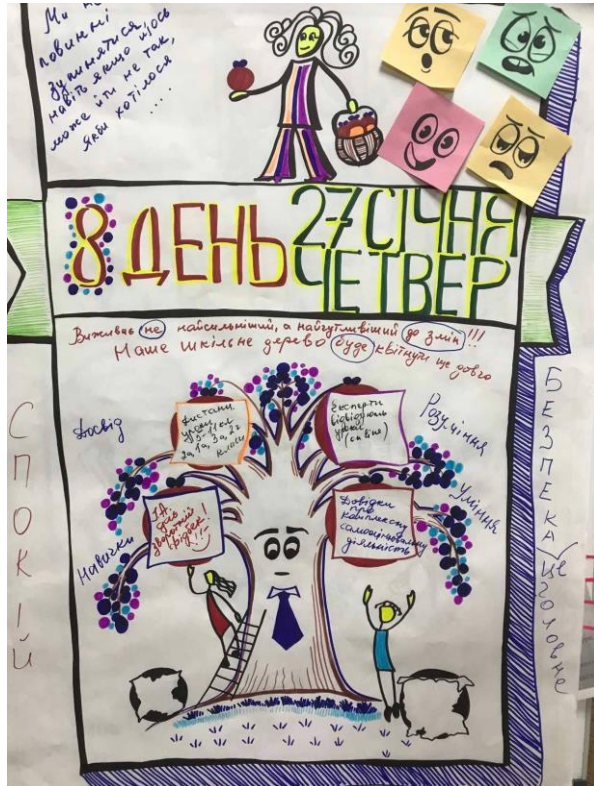 Ми не
повинні
зупинятися,
навіть якщо щось
може йти не так,
як хотілося
....
8 ДЕНЬ
27 СІЧНЯ
ЧЕТВЕР
Виживає не найсильніший, а найчутливіший до змін!!!
Наше шкільне дерево буде квітнути ще довго
Досвід
Навички
Розуміння
Уміння
Дистанц.
уроки
класи
Експерти
відвідують
уроки
1А
дав
зворотній
фідбек!
Довідки
про
комплексну
самооцінювальну
діяльність
СПОКІЙ
БЕЗПЕКА
це
головне